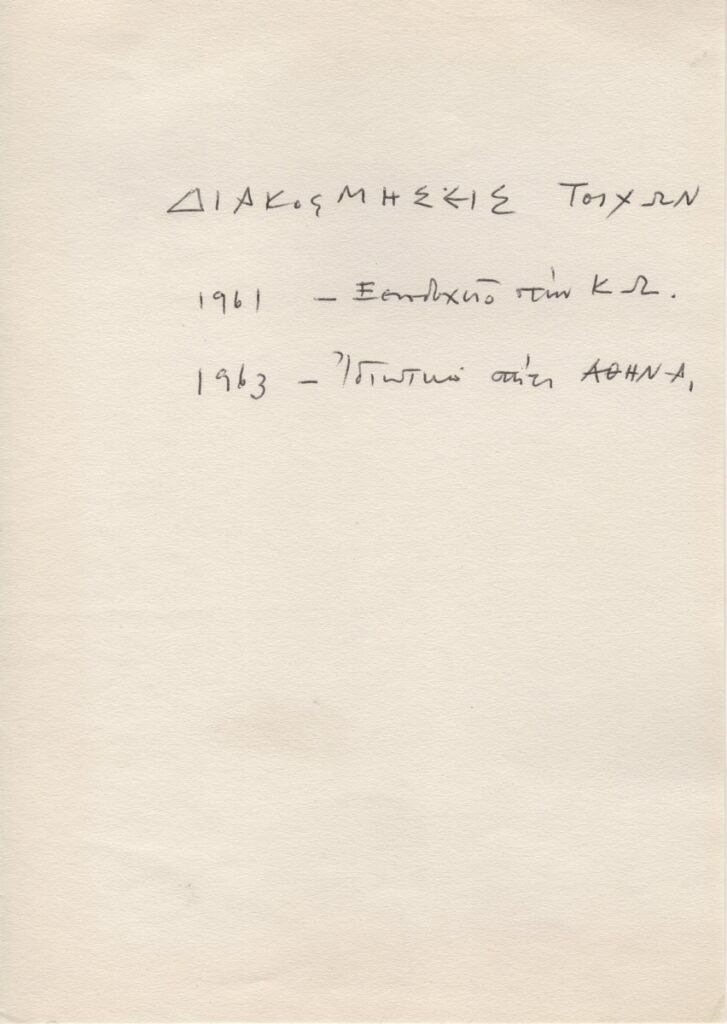 ΔΙΑΚΟςΜΗΣΕΙΣ ΤΟΙΧΩΝ
1961 – Ξενοδοχεῖο στὴν ΚΩ.
1963 – Ἰδιωτικὸ σπίτι ΑΘΗΝΑ,